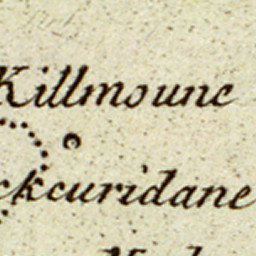 Killmoune
ckcuridane